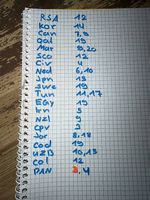 RSA 12
Kor 14
Can 7,9
Qat 19
Mar 9,20
Sco 12
Civ 4
Ned 6,10
Jpn 15
Swe 19
Tun 11,17
EGY 19
Irn 5
Nzl 9
CPV 2
Jor 8,18
Cod 19
UZB 10,15
Col 12
PAN 2,4